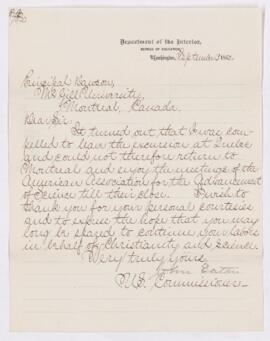 Department of the Interior,
BUREAU OF EDUCATION,
Washington, September 1882.
Principal Dawson,
McGill University,
Montreal, Canada.
Dear Sir
It turned out that I was com-
pelled to leave the excursion at Quebec
and could not therefore return to
Montreal and enjoy the meetings of the
American Association for the Advancement
of Science till their close. I wish to
thank you for your personal courtesies
and to express the hope that you may
long be spared to continue your labors
in behalf of Christianity and science.
Very truly yours,
John Eaton
U.S. Commissioner